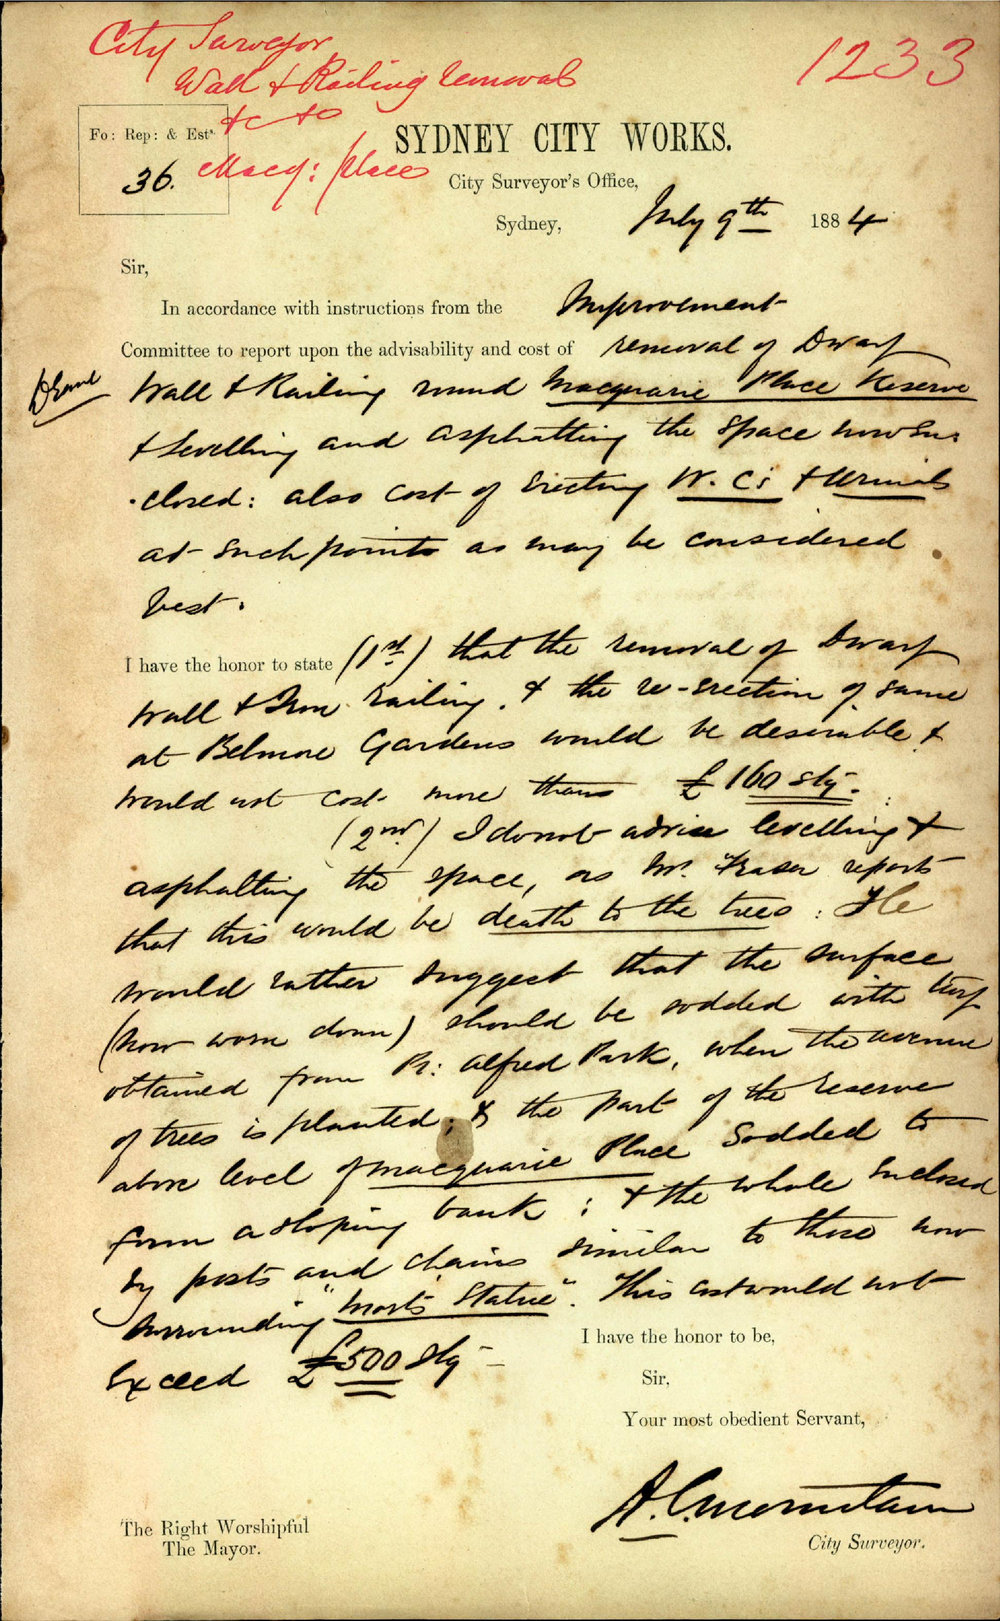 City Surveyor
1233
Wall & Railing removal
&c &c
Fo: Rep: & Est^s
36.
Macq: place
SYDNEY CITY WORKS.
City Surveyor's Office,
Sydney, July 9th 1884
Sir,
In accordance with instructions from the Improvement
Committee to report upon the advisability and cost of removal of Dwarf
Wall & Railing round Macquarie Place Reserve
& Levelling and asphalting the space now En-
-closed: also cost of Erecting W.Cs & Urinals
at such points as may be considered
best.
I have the honor to state (1st) that the removal of Dwarf
Wall & Iron railing, & the re-erection of same
at Belmore Gardens would be desirable &
would not cost more than £160 stg-.
(2nd) I do not advise levelling &
asphalting the space, as Mr. Fraser reports
that this would be death to the trees: He
would rather suggest that the surface
(now worn down) should be sodded with turf
obtained from Pr: Alfred Park, when the avenue
of trees is planted; & the part of the Reserve
above level of Macquarie Place Sodded to
form a sloping bank; & the whole Enclosed
by posts and chains similar to those now
surrounding "Morts Statue". This cost would not
Exceed £500 Stg-
I have the honor to be,
Sir,
Your most obedient Servant,
A.C. Mountain
City Surveyor.
The Right Worshipful
The Mayor.